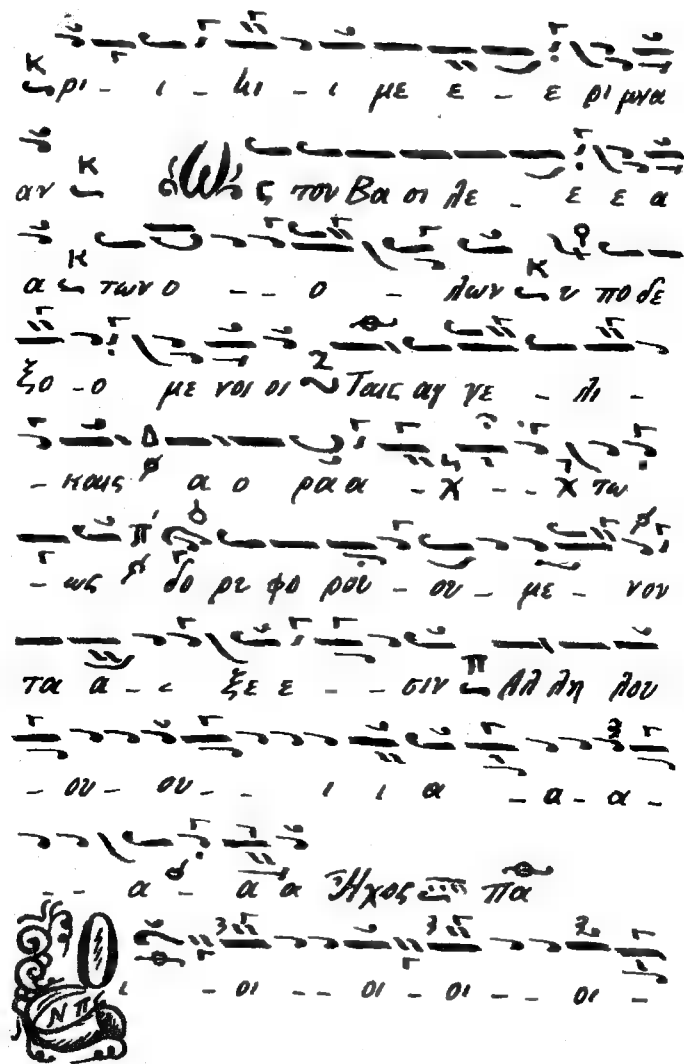 ρι - ι - ι - ι με ε - ε ρι μνα
αν Ως του Βα σι λε - ε ε α
α των ο - - ο - λων υ πο δε
ξο - ο με νοι οι Ταις αγ γε - λι -
- καις α ο ρα α - χ - - χ τω
- ως δο ρυ φο ρου - ου - με - νον
τα α - ξε ε - - σιν Αλ λη λου
- ου - ου - - ι ι α - α - α -
- - α - α α Ήχος πα
ι - οι - - οι - οι - - οι -